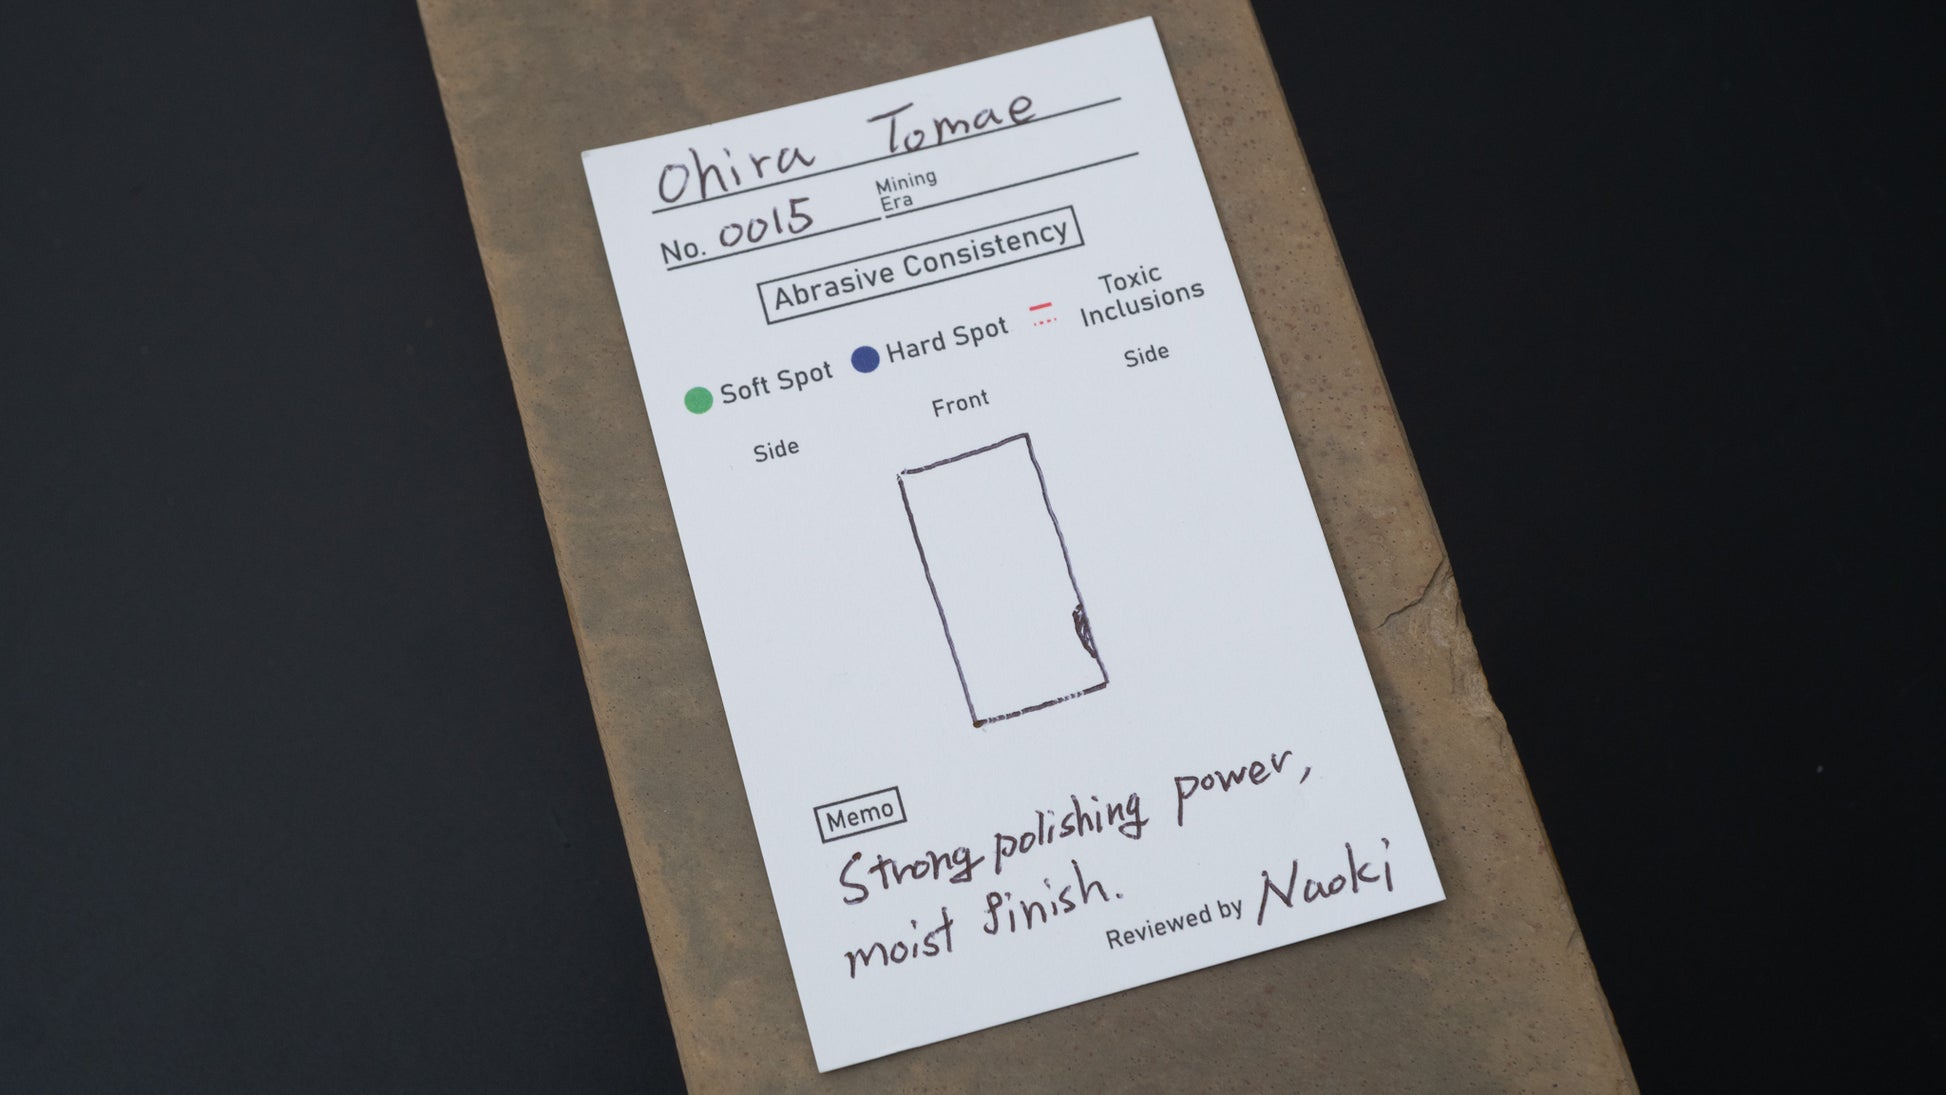 Ohira Tomae
No. 0015 Mining Era
Abrasive Consistency
Soft Spot Hard Spot Toxic Inclusions
Side Front Side
Memo
Strong polishing power,
moist finish.
Reviewed by Naoki